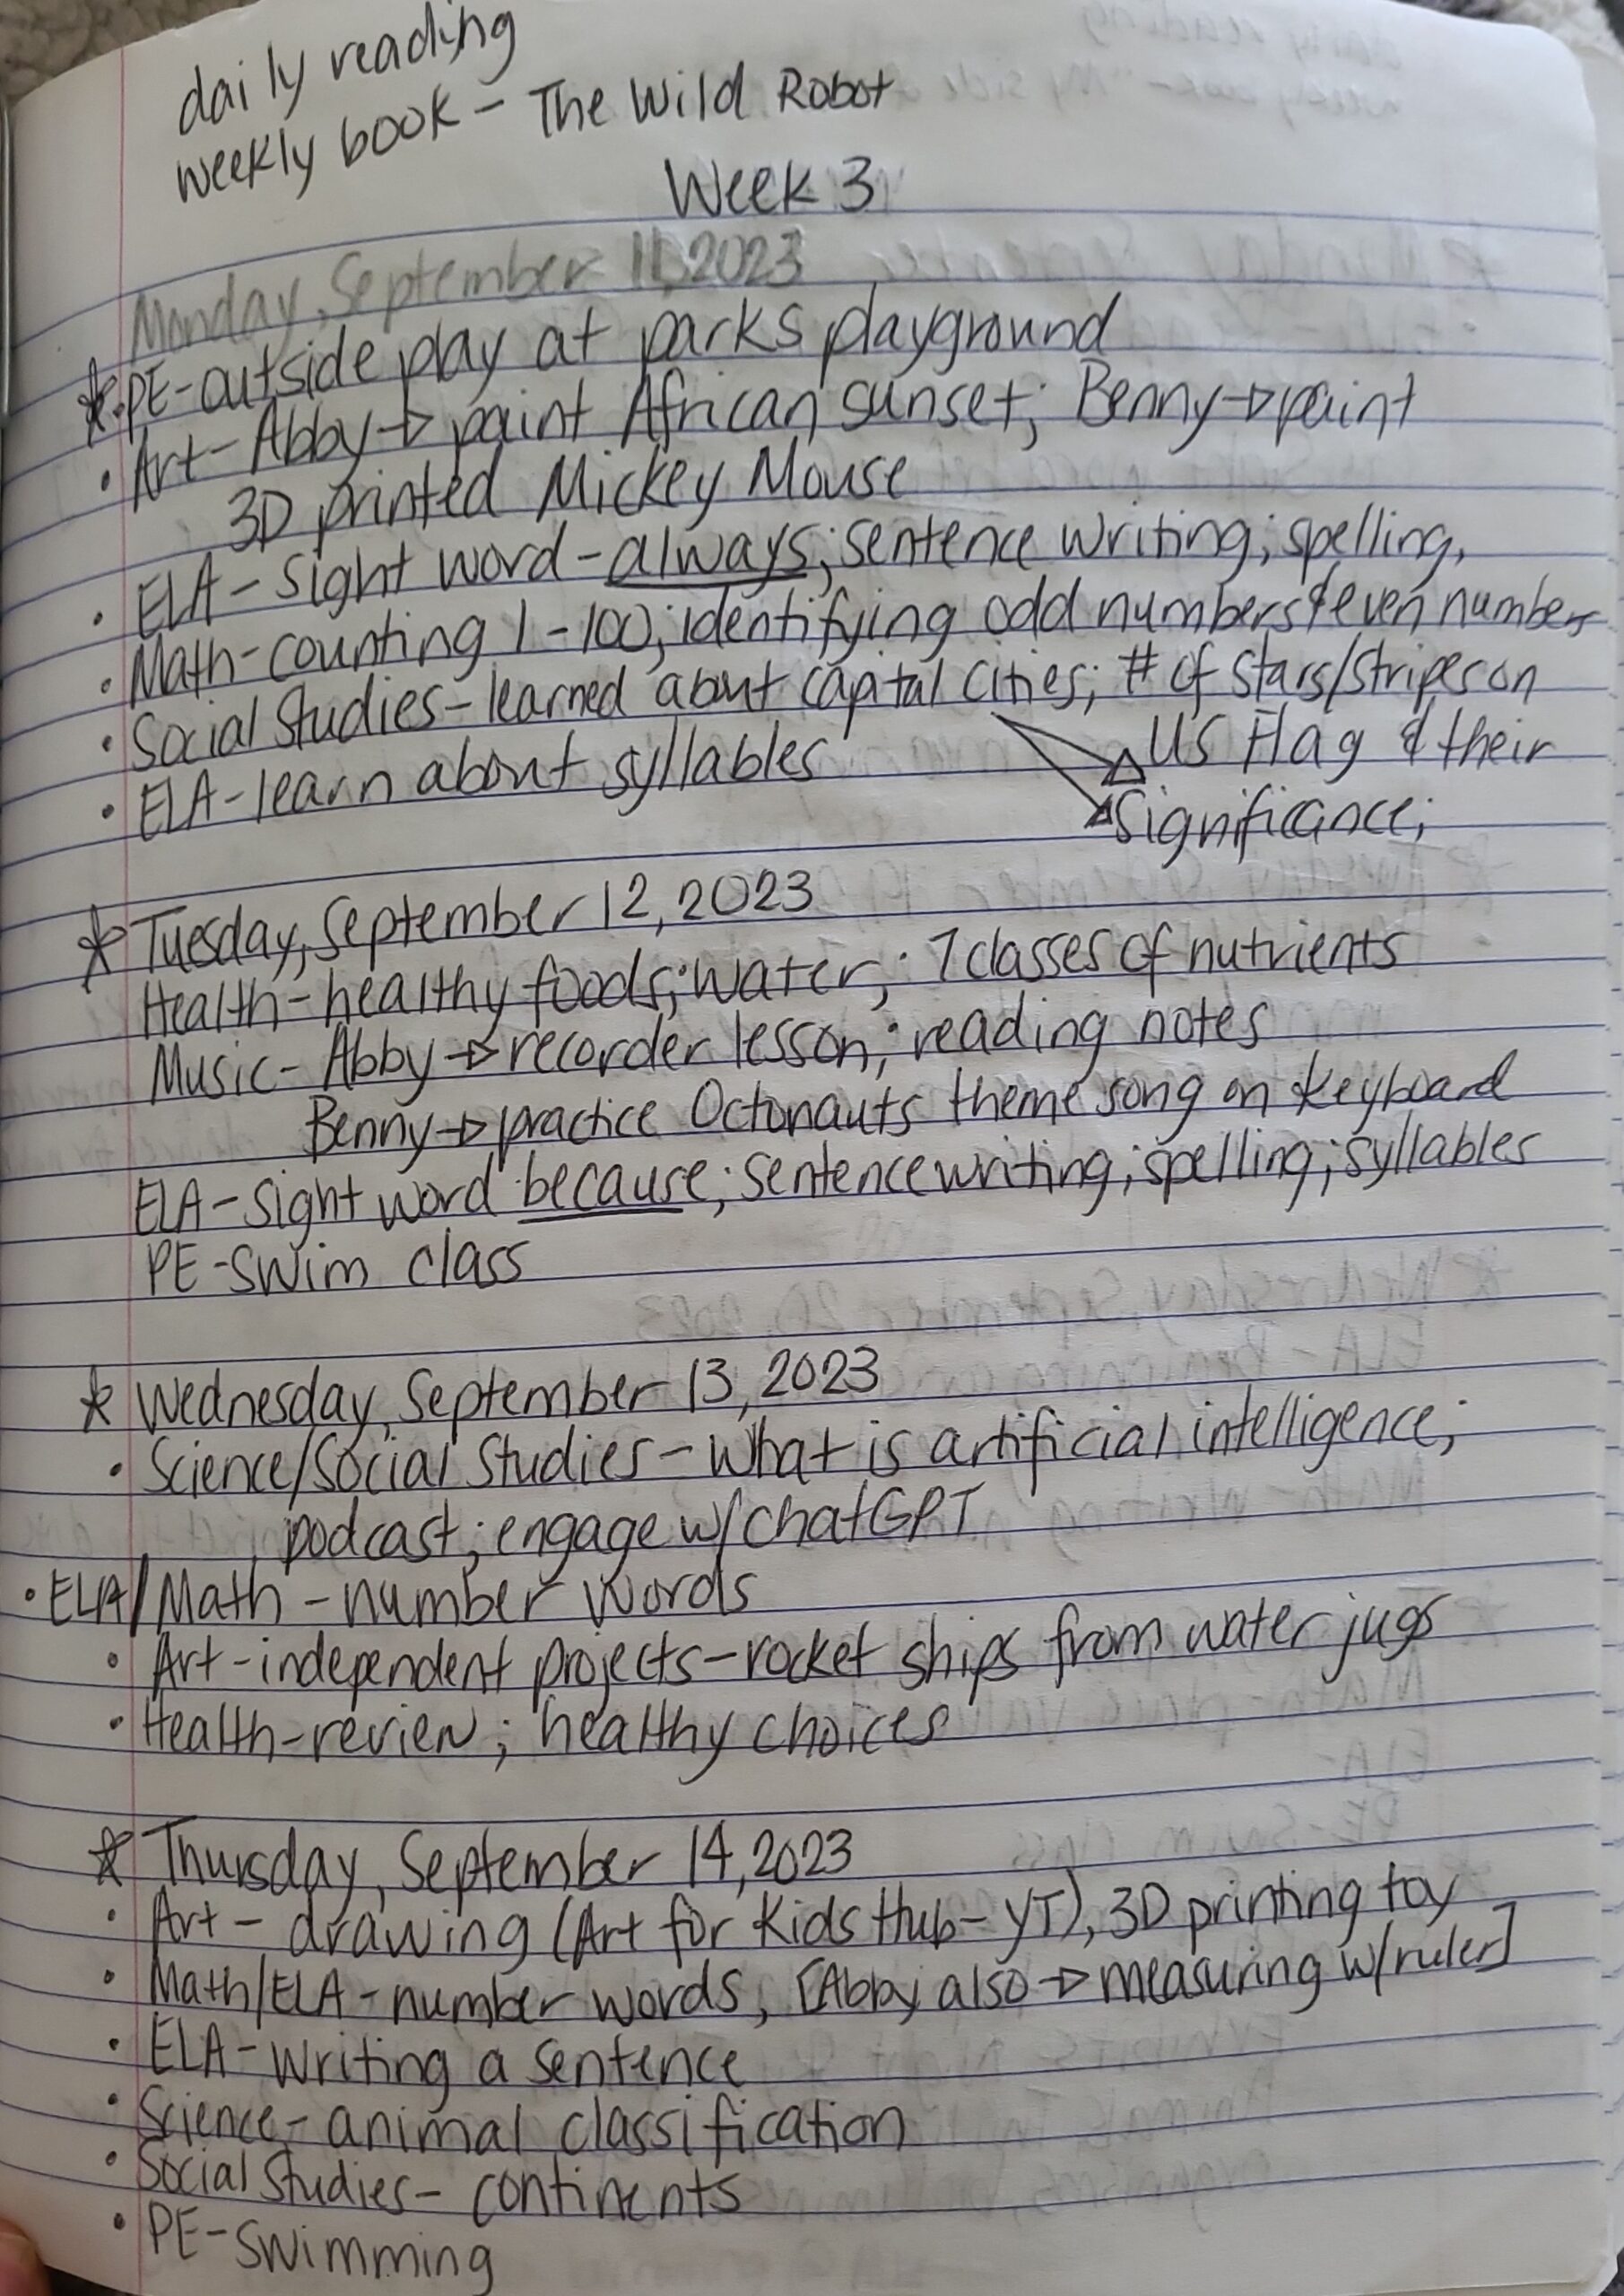 daily reading
weekly book - The Wild Robot
Week 3
Monday, September 11, 2023
* • PE - outside play at parks playground
• Art - Abby → paint African sunset; Benny → paint
3D printed Mickey Mouse
• ELA - Sight word - always; sentence writing; spelling,
• Math - counting 1-100; identifying odd numbers & even numbers
• Social Studies - learned about capital cities; # of stars/stripes on
→ US Flag & their
• ELA - learn about syllables
→ significance;
* Tuesday, September 12, 2023
Health - healthy foods; water; 7 classes of nutrients
Music - Abby → recorder lesson; reading notes
Benny → practice Octonauts theme song on keyboard
ELA - sight word because; sentence writing; spelling; syllables
PE - swim class
* Wednesday, September 13, 2023
• Science/Social Studies - What is artificial intelligence;
podcast; engage w/ChatGPT
• ELA/Math - number words
• Art - independent projects - rocket ships from water jugs
• Health - review; healthy choices
* Thursday, September 14, 2023
• Art - drawing (Art for Kids Hub - YT), 3D printing toy
• Math/ELA - number words, [Abby also → measuring w/ruler]
• ELA - Writing a sentence
• Science - animal classification
• Social Studies - continents
• PE - swimming